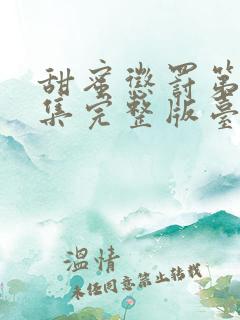 甜蜜懲罰第
集完整版臺
溫情
未经同意禁止转载